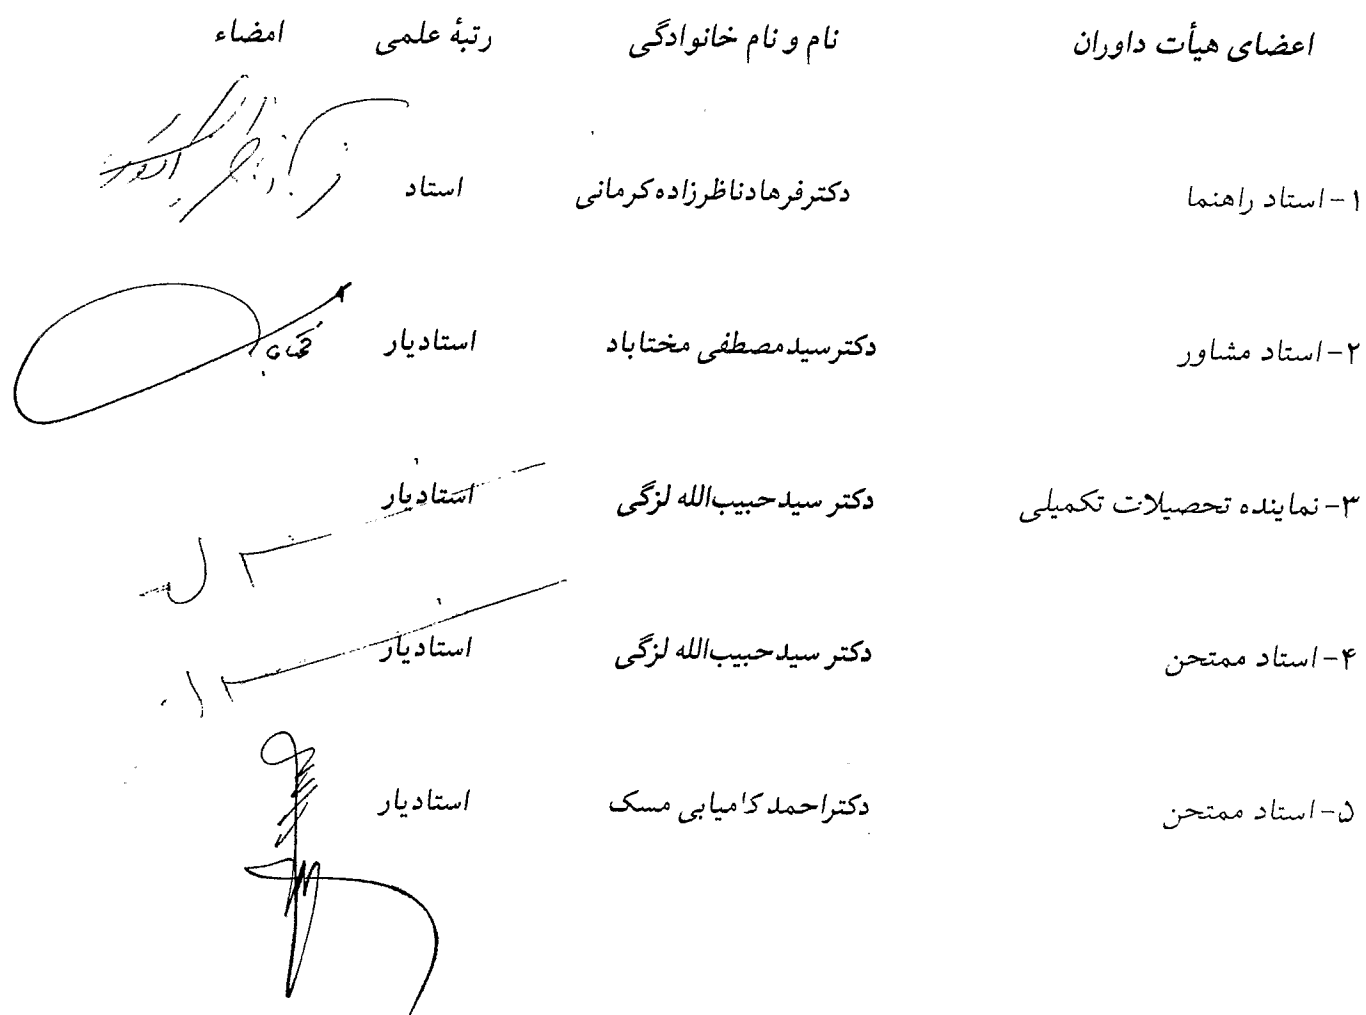 اعضای هیأت داوران نام و نام خانوادگی رتبهٔ علمی امضاء
۱- استاد راهنما دکتر فرهاد ناظرزاده کرمانی استاد
۲- استاد مشاور دکتر سید مصطفی مختاباد استادیار
۳- نماینده تحصیلات تکمیلی دکتر سید حبیب‌الله لزگی استادیار
۴- استاد ممتحن دکتر سید حبیب‌الله لزگی استادیار
۵- استاد ممتحن دکتر احمد کامیابی مسک استادیار